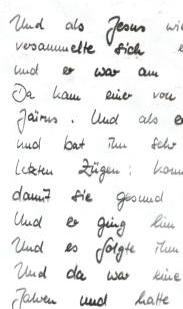 Und als Jesus wie
versammelte sich e
und er war am
Da kam einer von
Jairus. Und als e
und bat ihn sehr
letzten Zügen; kom
damit sie gesund
Und er ging hin
Und es folgte ihm
Und da war eine
Jahren und hatte